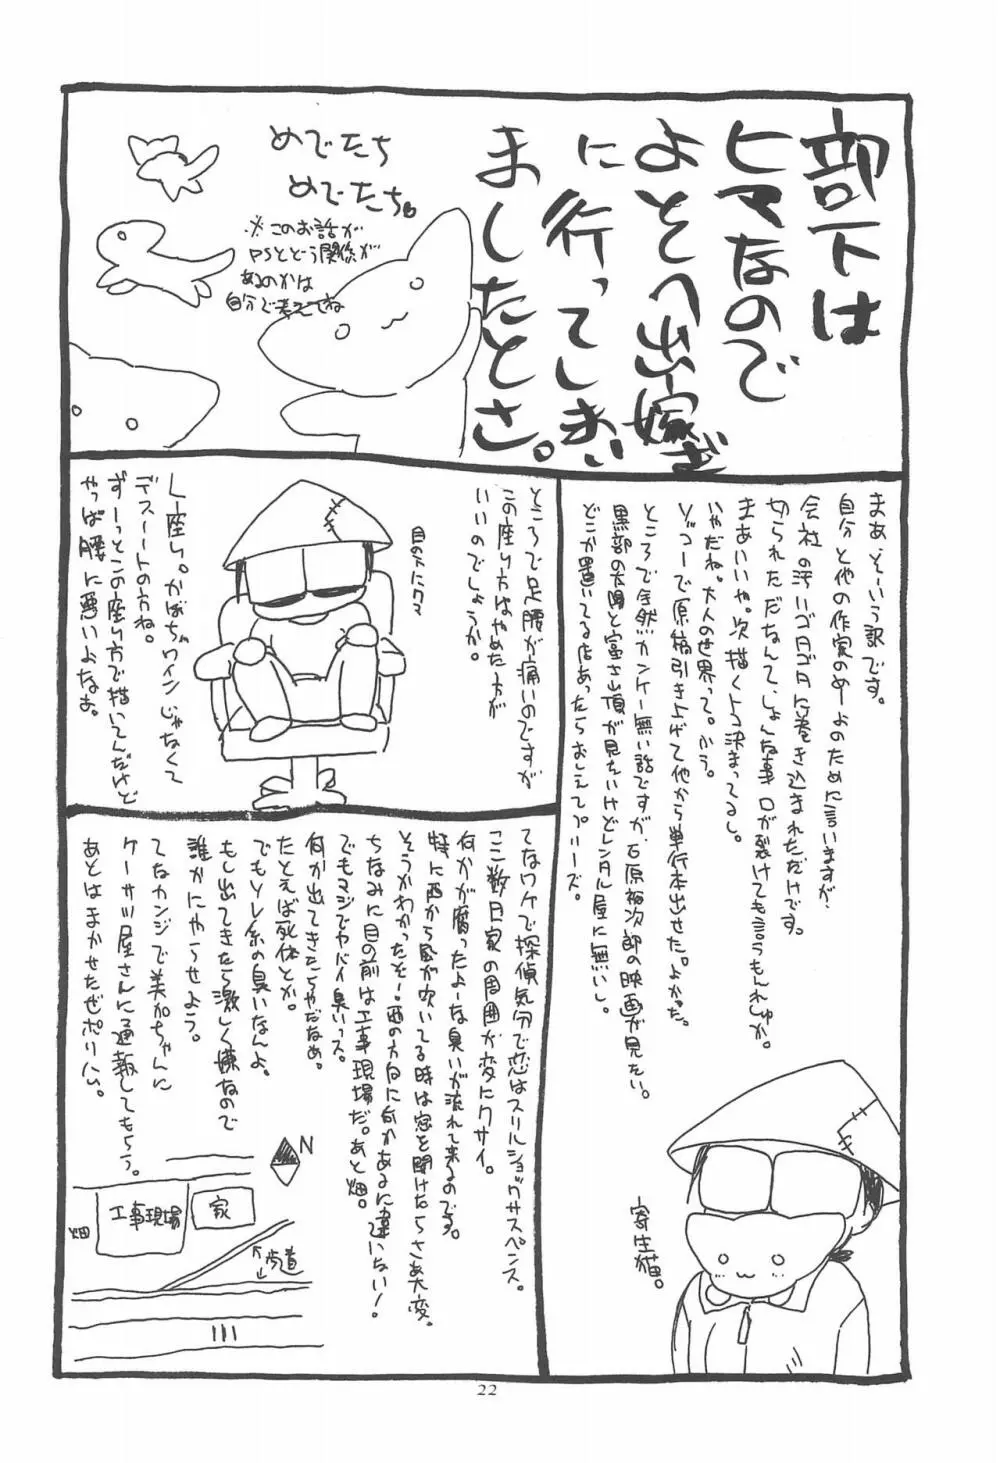 部下は
ヒマなので
よそへ出稼ぎ
に行ってしまい
ましたとさ。
めでたち
めでたち。
※このお話が
PSとどう関係が
あるのかは
自分で考えてね
まあ、そーいう訳です。
自分と他の作家のめーよのために言いますが、
会社の汚いゴタゴタに巻き込まれただけです。
切られただなんて、しょんな事口が裂けても言うもんれしゅか。
まあいいや。次描くトコ決まってるし。
いやだね。大人の世界って。ふう。
ソッコーで原稿引き上げて他から単行本出せた。よかった。
ところで全然カンケー無い話ですが、石原裕次郎の映画が見たい。
黒部の太陽と富士山頂が見たいけどレンタル屋に無いし。
どこか置いてる店あったらおしえてプリーズ。
寄生猫。
ところで足腰が痛いのですが
この座り方はやめた方が
いいのでしょうか。
目の下にクマ
L座り。かぼちゃワインじゃなくて
デスノートの方ね。
ずーっとこの座り方で描いてんだけど
やっぱ腰に悪いよなぁ。
てなワケで探偵気分で恋はスリルショックサスペンス。
ここ数日家の周囲が変にクサイ。
何かが腐ったよーな臭いが流れて来るのです。
特に西から風が吹いてる時は窓を開けたらさあ大変。
そうかわかったぞ!西の方向に何かあるに違いない!
ちなみに目の前は工事現場だ。あと畑。
でもマジでヤバイ臭いっス。
何か出てきたらやだなぁ。
たとえば死体とか。
でもソレ系の臭いなんよ。
もし出てきたら激しく嫌なので
誰かにやらせよう。
てなカンジで美加ちゃんに
ケーサツ屋さんに通報してもらう。
あとはまかせたぜポリ公。
N
畑
工事現場
家
歩道
22